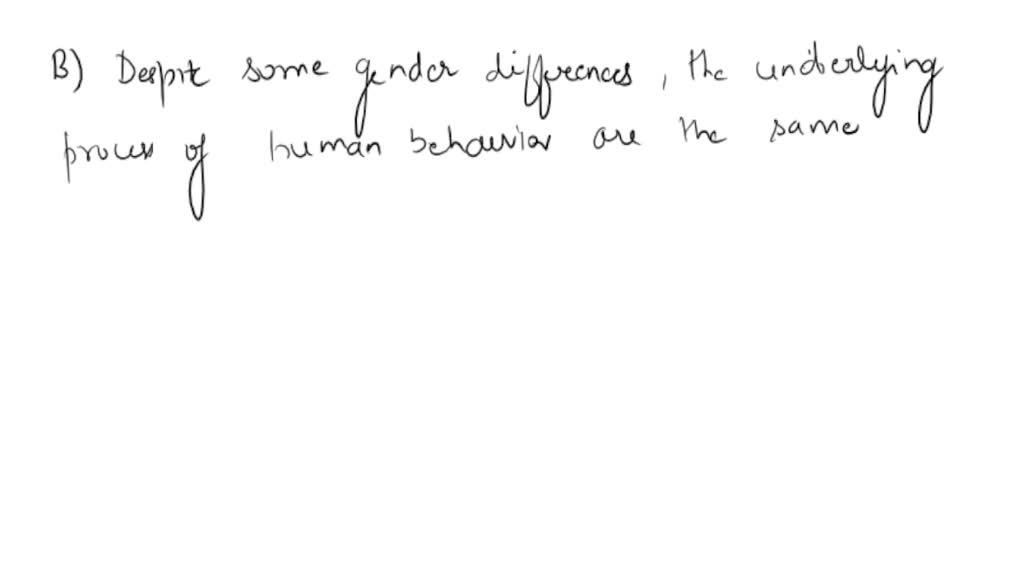 B) Despite some gender differences, the underlying
process of human behavior are the same